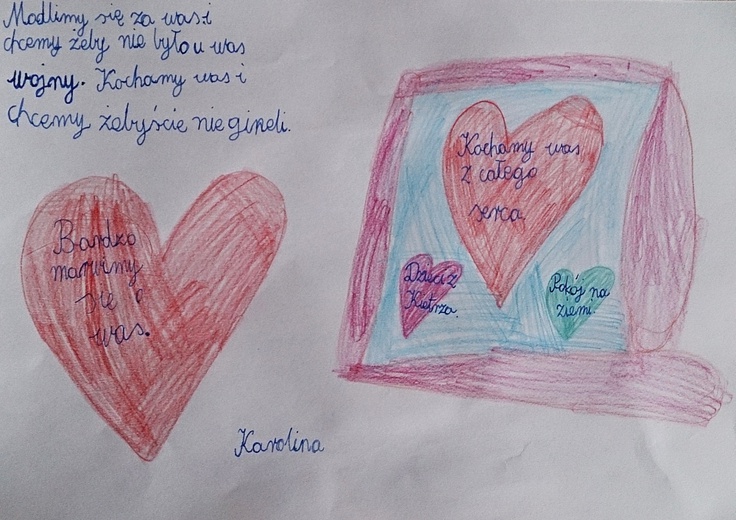 Modlimy się za was i
chcemy żeby nie było u was
wojny. Kochamy was i
chcemy żebyście nie gineli.
Bardzo
martwimy
się o
was.
Kochamy was
z całego
serca
Dzieci z
Kietrza.
Pokój na
ziemi.
Karolina